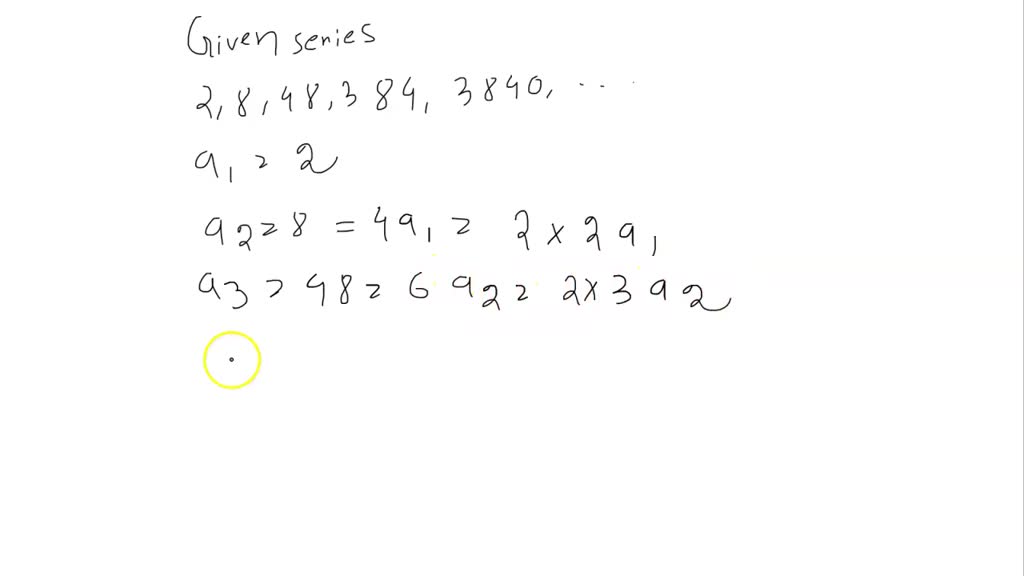 Given series
2, 8, 48, 384, 3840, ...
a1 = 2
a2 = 8 = 4a1 = 2 x 2 a1
a3 = 48 = 6 a2 = 2x 3 a2